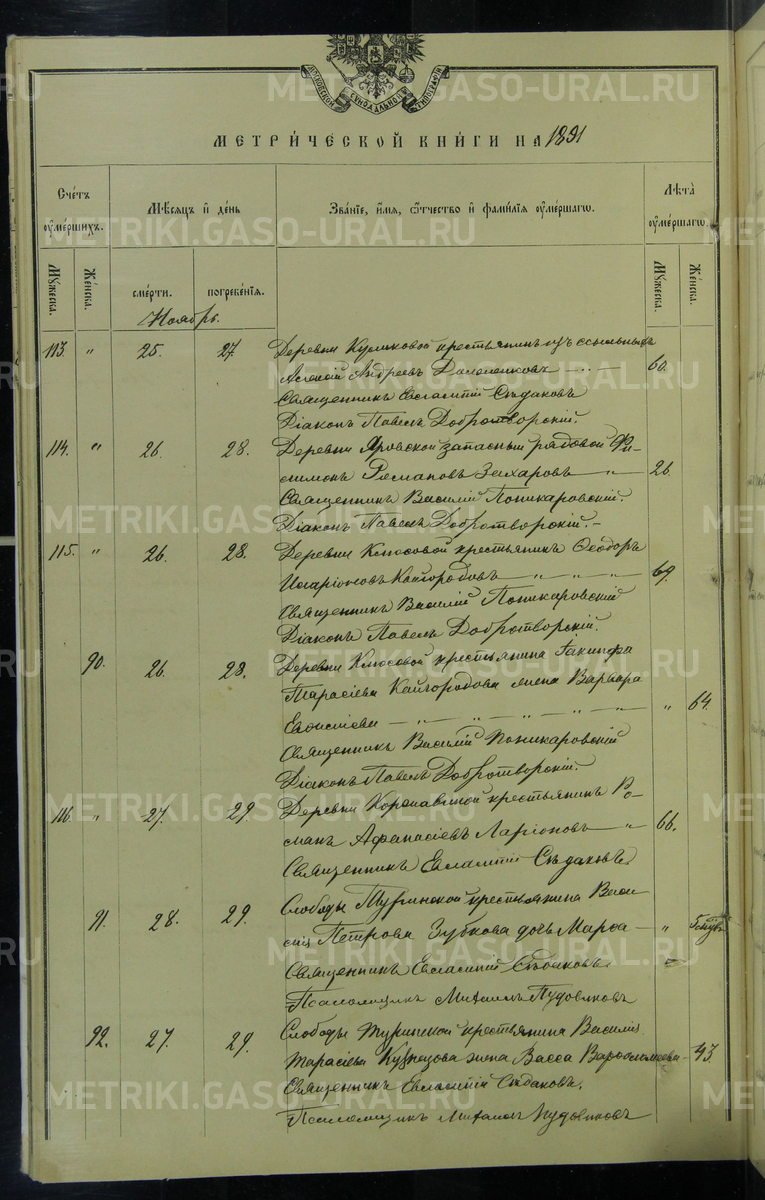 МОСКОВСКОЙ СѴНОДАЛЬНОЙ ТИПОГРАФІИ
МЕТРИ́ЧЕСКОЙ КНИ́ГИ НА 1891
Сче́тъ ᲂу҆ме́ршихъ.
Мѣ́сяцъ и҆ де́нь
Зва́нїе, и҆́мя, ѻ҆́тчество и҆ фами́лїя ᲂу҆ме́ршагѡ.
Лѣ́та ᲂу҆ме́ршагѡ.
Му́жеска. Же́нска. сме́рти. погребе́нїя. Му́жеска. Же́нска.
Ноябрь.
113. " 25. 27. Деревни Куликовой крестьянинъ изъ ссыльныхъ
Андреевъ — 60.
Священникъ Евлампій Сѣдаковъ
Діаконъ Павелъ Добротворскій.
114. " 26. 28. Деревни Яровской запасный рядовой Фи-
лимонъ Романовъ Захаровъ — " 26.
Священникъ Василій Поникаровскій.
Діаконъ Павелъ Добротворскій. –
115. " 26. 28. Деревни Клюсовой крестьянинъ Ѳеодоръ
Иларіоновъ Кайгородовъ — " — " — " 69.
Священникъ Василій Поникаровскій
Діаконъ Павелъ Добротворскій.
90. 26. 28. Деревни Клюсовой крестьянина Іакинфа
Тарасіева Кайгородова жена Варвара
— " — " — " — " " 64.
Священникъ Василій Поникаровскій
Діаконъ Павелъ Добротворскій.
116. " 27. 29. Деревни крестьянинъ Ро-
манъ Аѳанасіевъ Ларіоновъ — " 66.
Священникъ Евлампій Сѣдаковъ.
91. 28. 29. Слободы Туринской крестьянина Васи-
лія Петрова Зубкова дочь Марѳа — "
Священникъ Евлампій Сѣдаковъ
Псаломщикъ Михаилъ Пудовиковъ
92. 27. 29. Слободы Туринской крестьянина Василія
Тарасіева Кузнецова жена Васса Варѳоломеева — 43.
Священникъ Евлампій Сѣдаковъ.
Псаломщикъ Михаилъ Пудовиковъ
METRIKI.GASO-URAL.RU